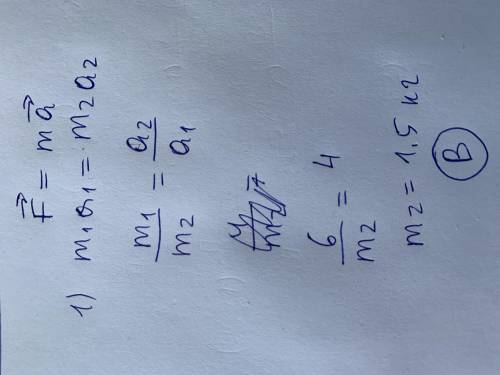 F⃗ = m a⃗
1) m₁ a₁ = m₂ a₂
m₁/m₂ = a₂/a₁
6/m₂ = 4
m₂ = 1,5 кг
В